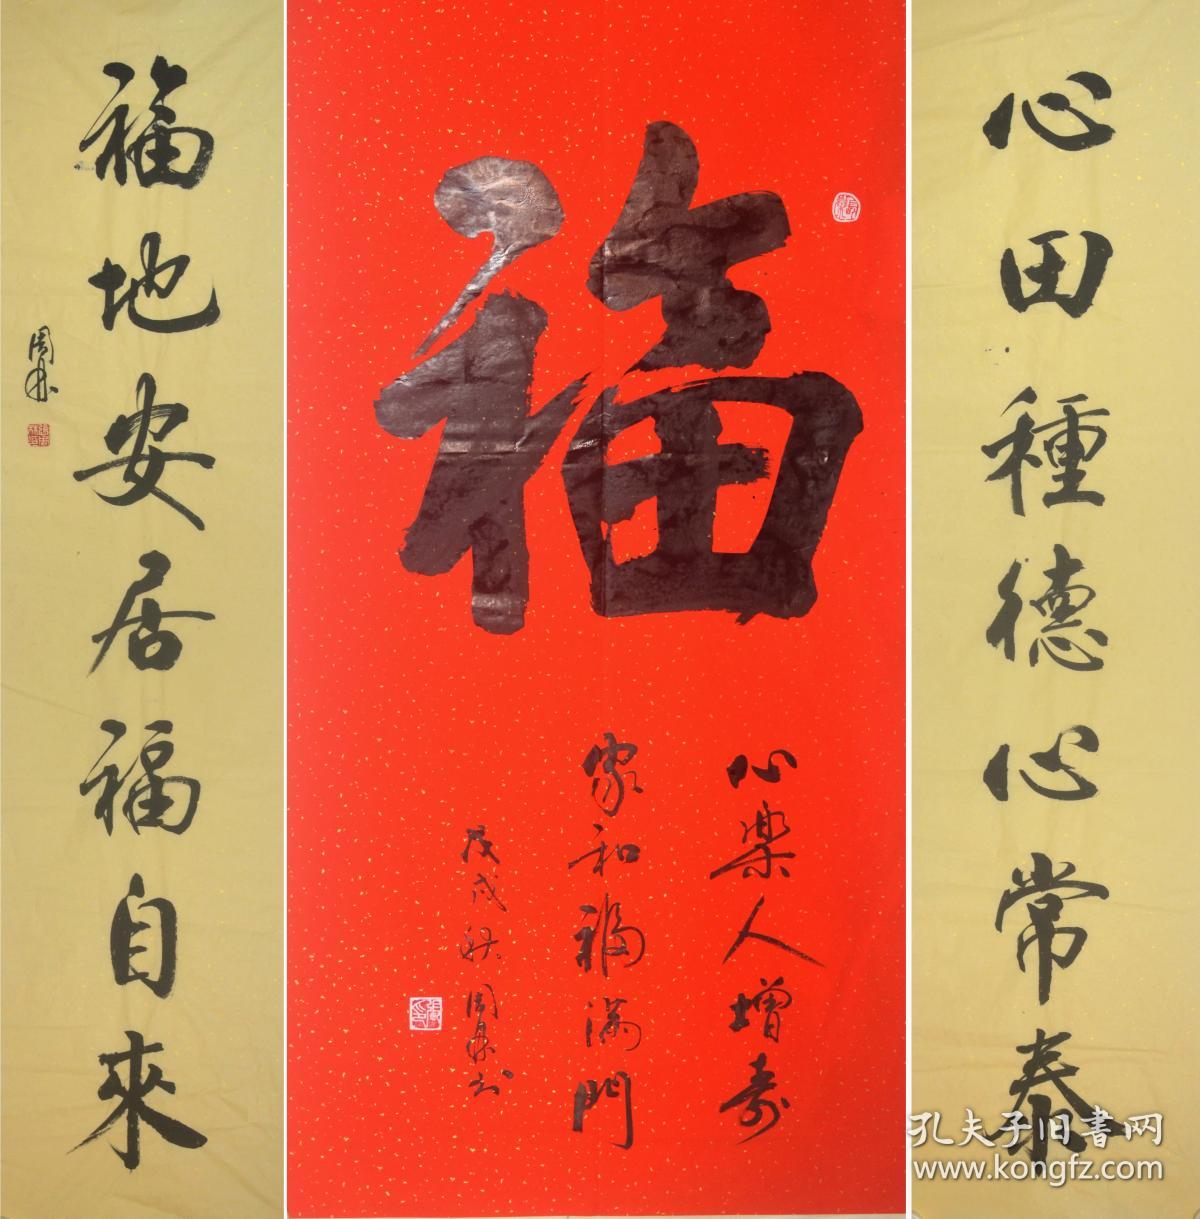 心田種德心常泰
福
心樂人增壽
家和福滿門
戊戌秋周林书
福地安居福自來
周林
孔夫子旧書网
www.kongfz.com